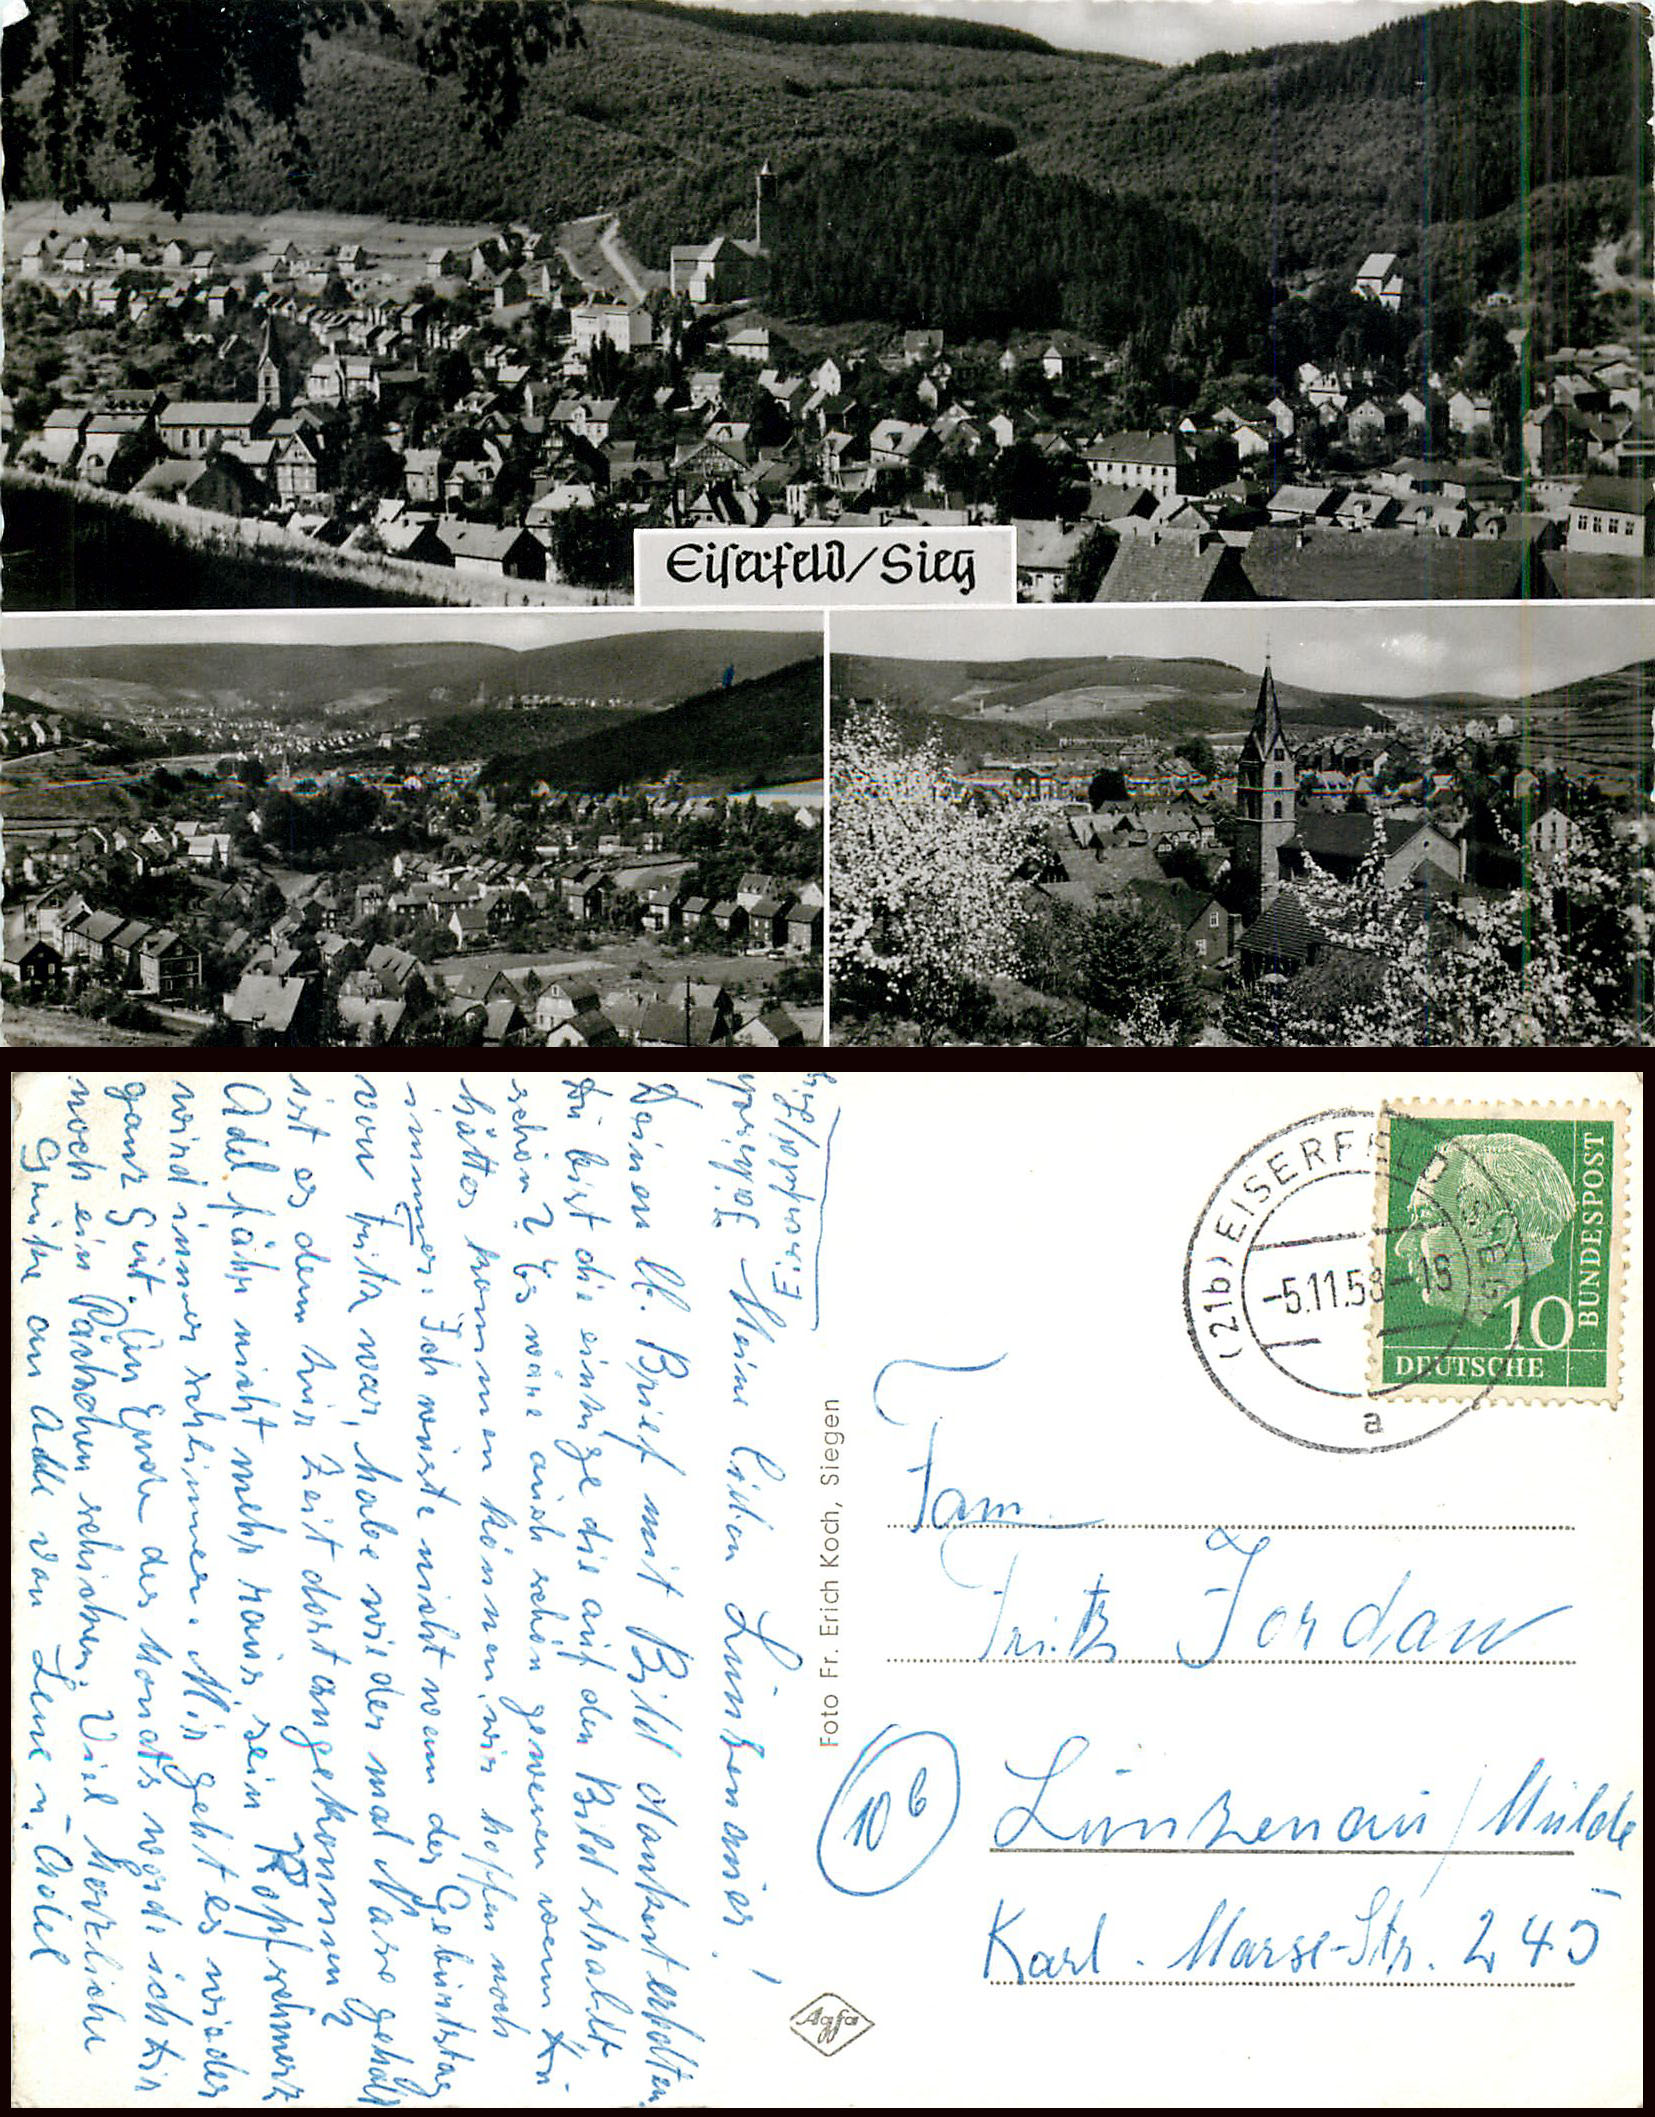 Eiserfeld/Sieg
Eiserfeld/Sieg
Meine lieben Lunzenauer!
Deinen lb. Brief mit Bild dankend erhalten.
Du bist die einzige die auf den Bild strahlt
schön? Es wäre auch schön gewesen wenn Du
hättes kommen können, wir hoffen noch
immer. Ich wusste nicht wann der Geburtstag
von Fritz war, habe wieder mal Maso gehabt
ist es denn zur Zeit dort angekommen?
Adel fährt nicht mehr raus, sein Kopfschmerz
wird immer schlimmer. Mir geht es wieder
ganz Gut. Am Ende des Monats werde ich Dir
noch ein Päckchen schicken. Viel herzliche
Grüße an Alle von Lene u. Adel
Foto Fr. Erich Koch, Siegen
Agfa
(21b) EISERFELD
-5.11.58-18
a
10
DEUTSCHE
BUNDESPOST
Fam.
Fritz Jordan
10b
Lunzenau/Mulde
Karl-Marx-Str. 245